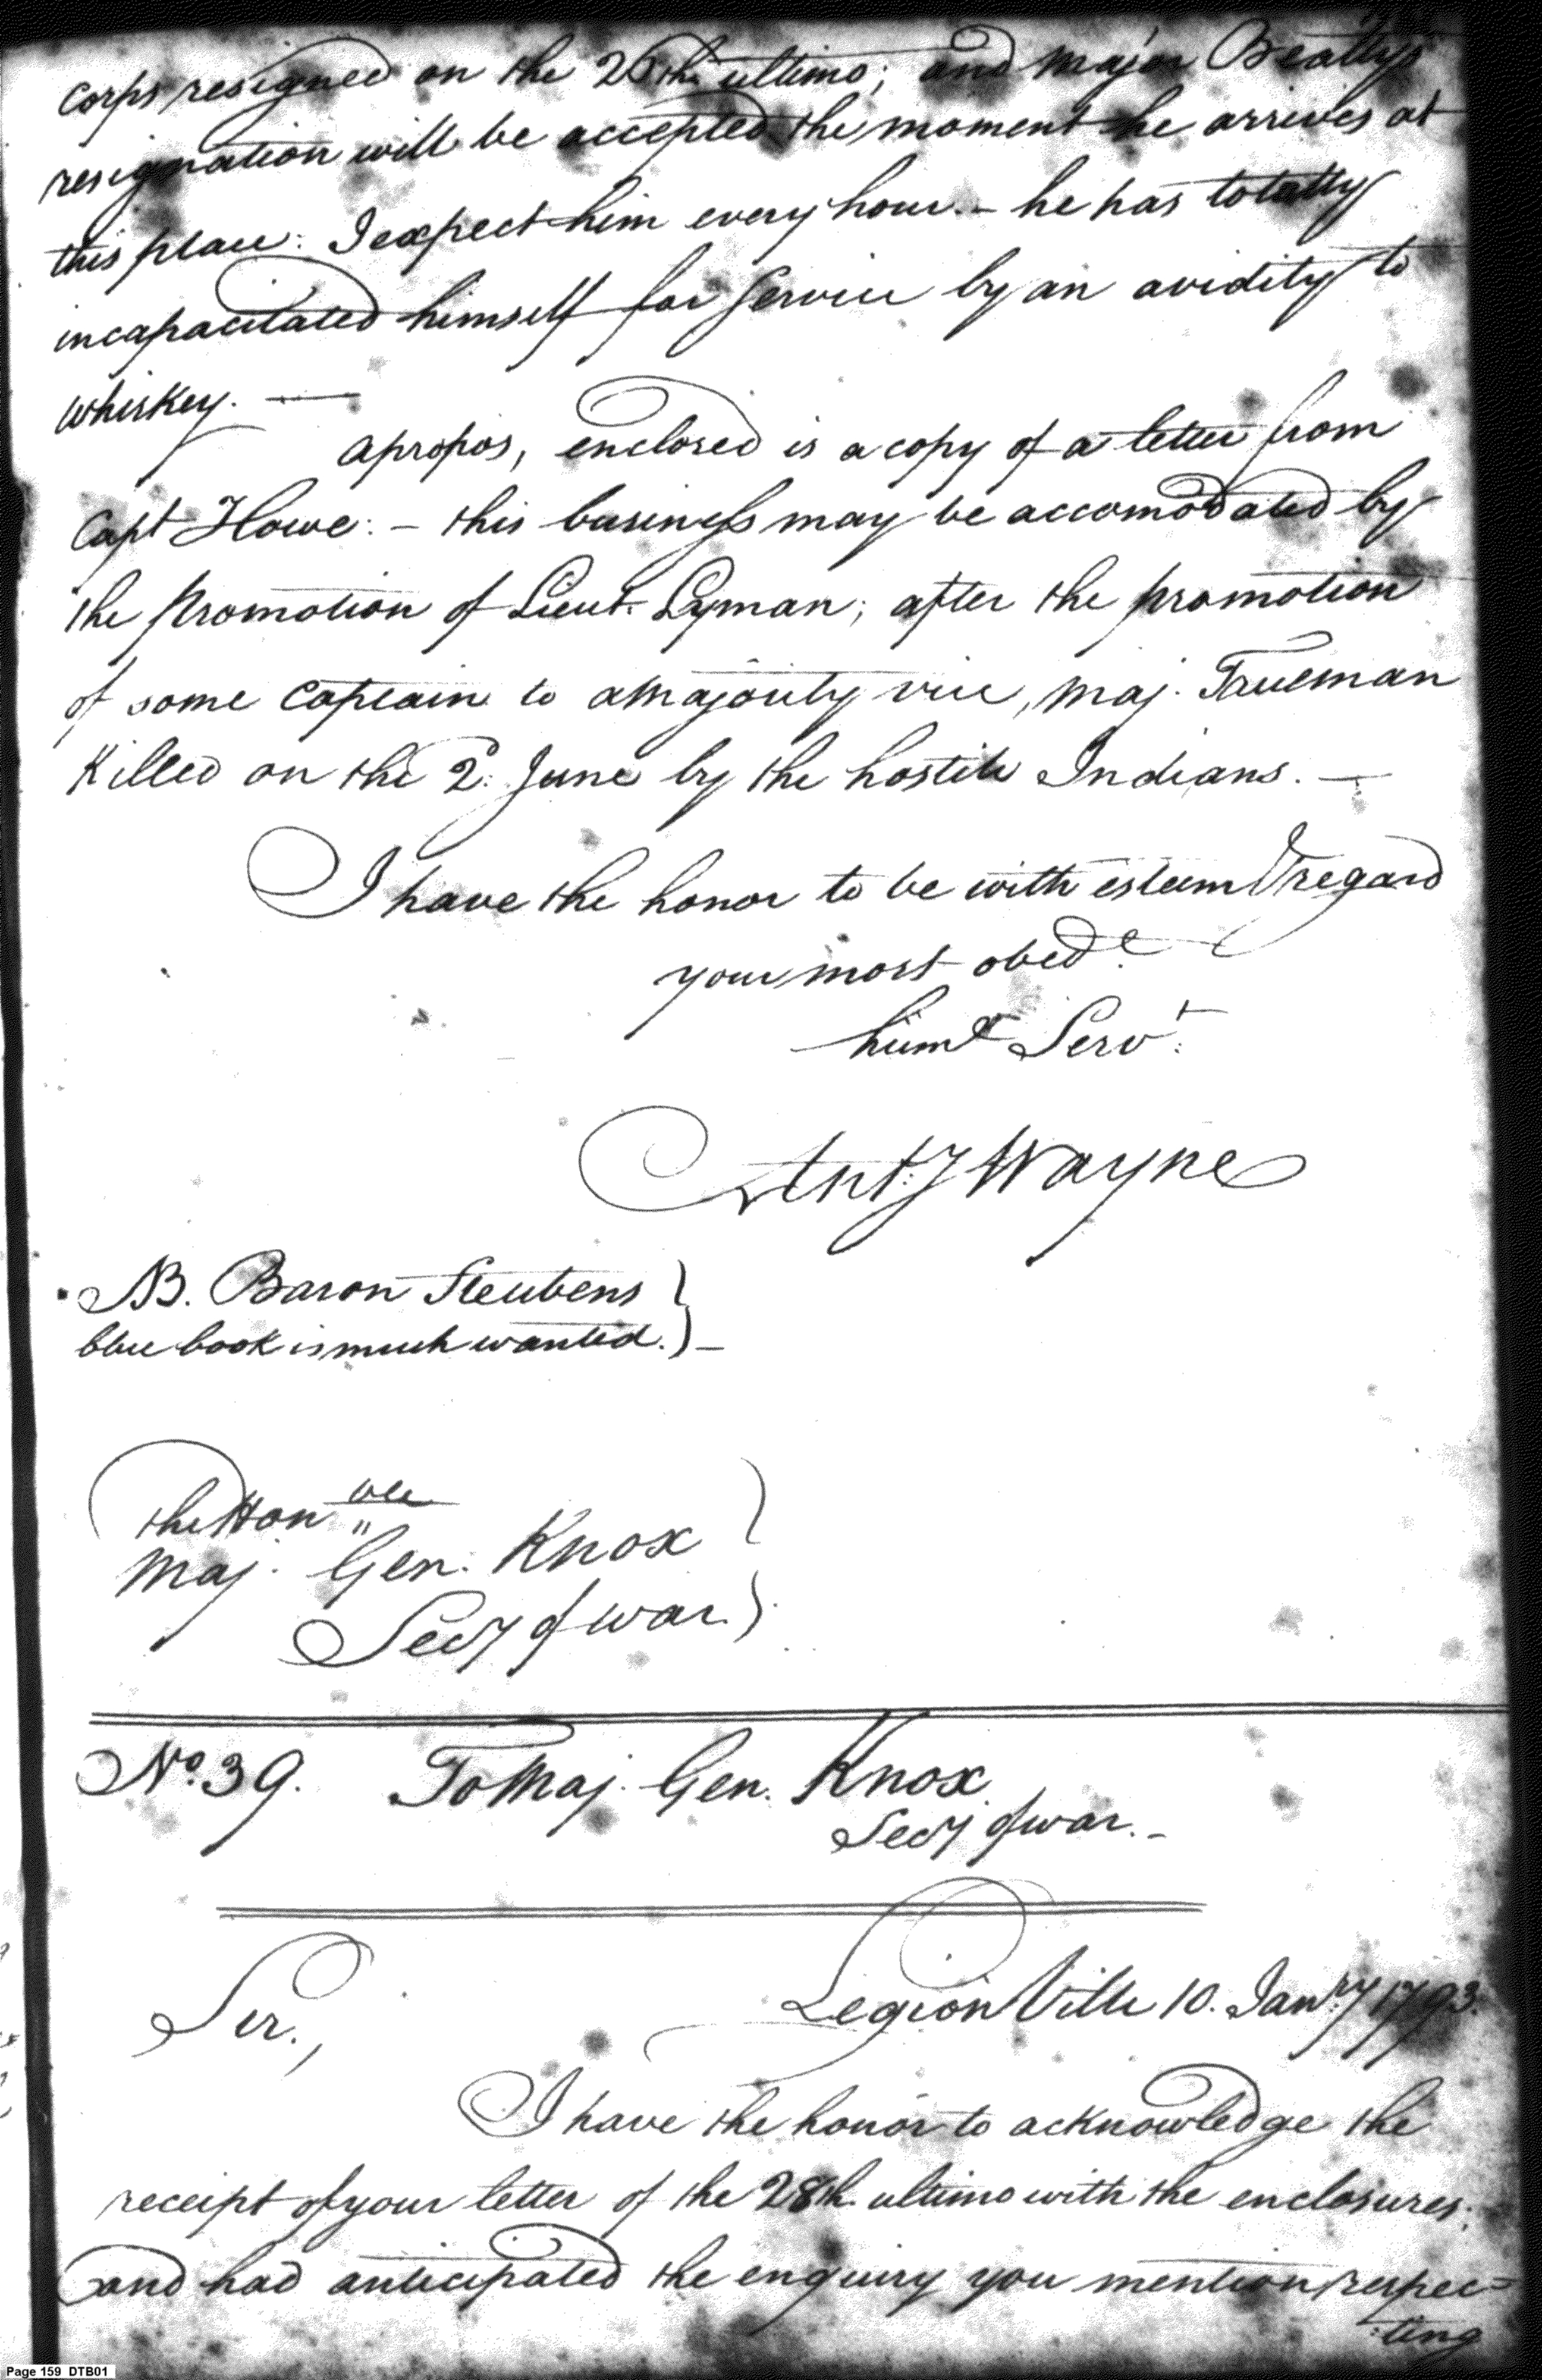 corps resigned on the 26th. ultimo; and major Beatty's
resignation will be accepted the moment he arrives at
this place: I expect him every hour. - he has totally
incapacitated himself for service by an avidity to
whiskey. —
apropos, enclosed is a copy of a letter from
Capt Howe: - this business may be accomodated by
the promotion of Lieut. Lyman; after the promotion
of some Captain to a majority vice, Maj. Trueman
Killed on the 2d. June by the hostile Indians. —
I have the honor to be with esteem & regard
your most obedt.
humle Servt.
Anty Wayne
NB. Baron Steubens
blue book is much wanted. -
The Honble
Maj. Gen. Knox
Secy of war.
No. 39. To Maj. Gen. Knox.
Secy of war. -
Legion Ville 10. Janry 1793.
Sir.,
I have the honor to acknowledge the
receipt of your letter of the 28th. ultimo with the enclosures;
and had anticipated the enquiry you mention respec=
:ting
Page 159 DTB01